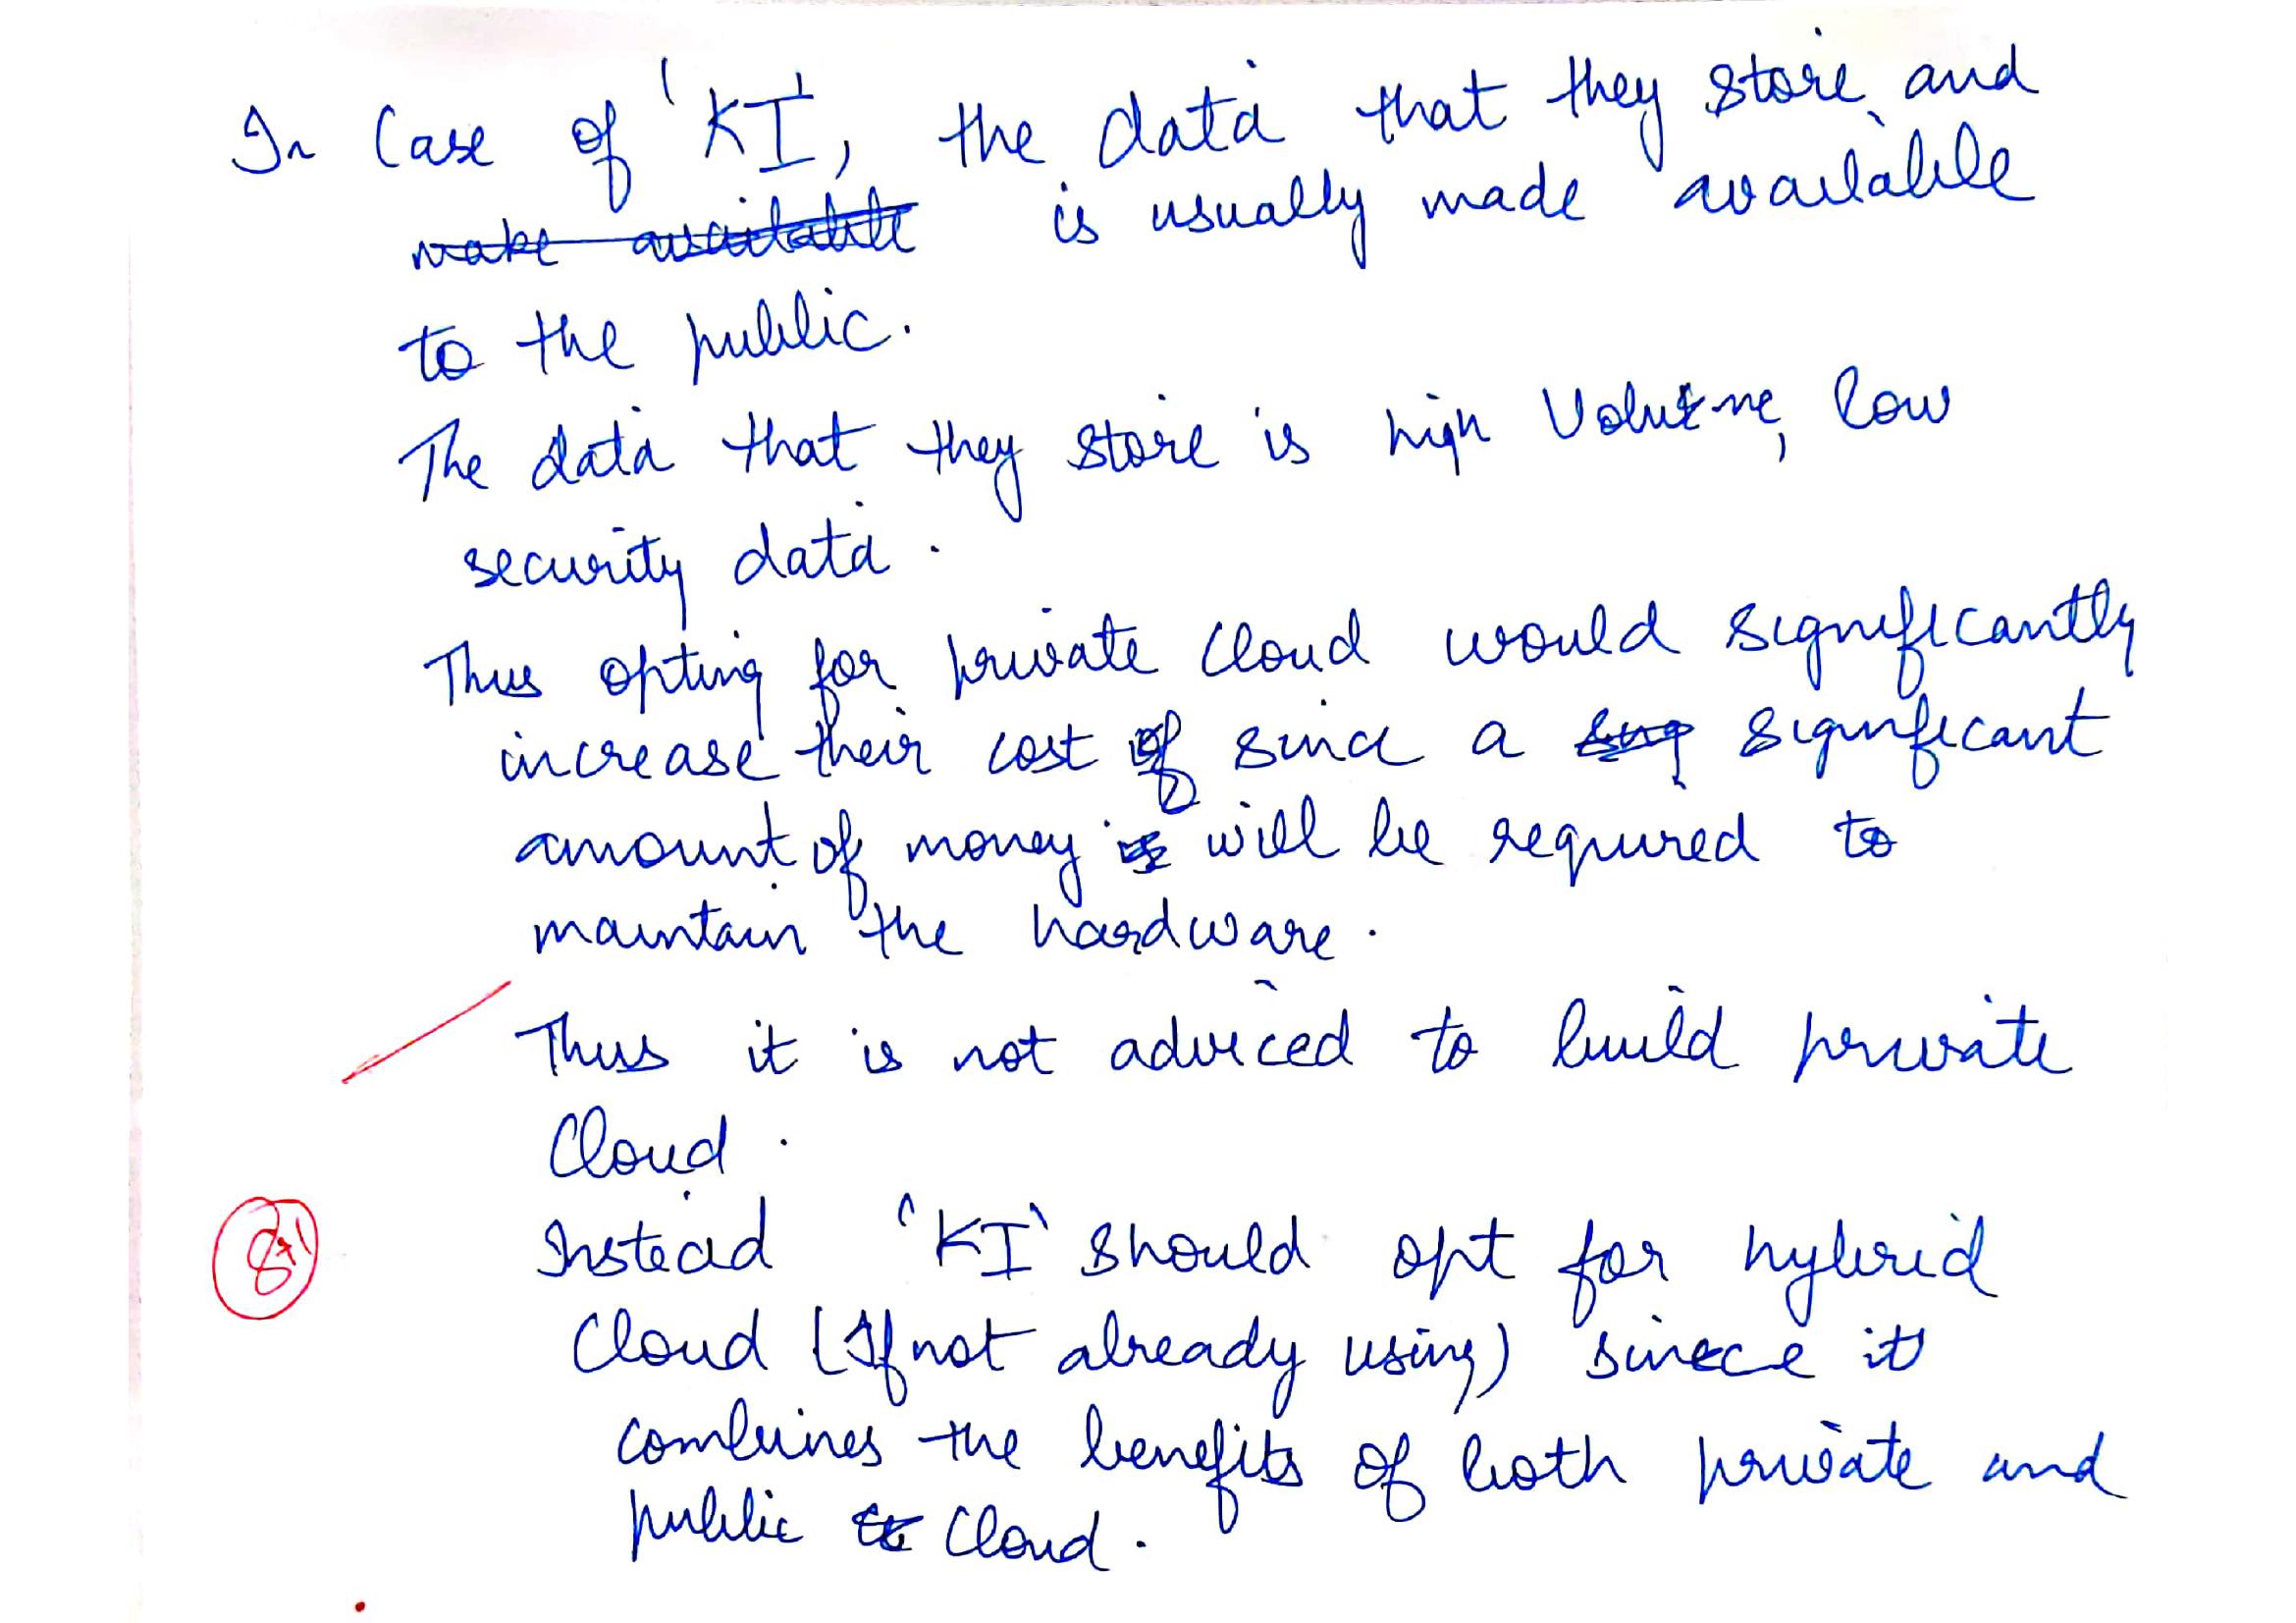 In Case of 'KI', the data that they store and
make available is usually made available
to the public.
The data that they store is high Volume, low
security data.
Thus opting for private cloud would significantly
increase their cost of since a sig significant
amount of money is will be required to
maintain the hardware.
Thus it is not adviced to build private
Cloud.
Instead 'KI' should opt for hybrid
Cloud (If not already using) since it
combines the benefits of both private and
public Cloud.